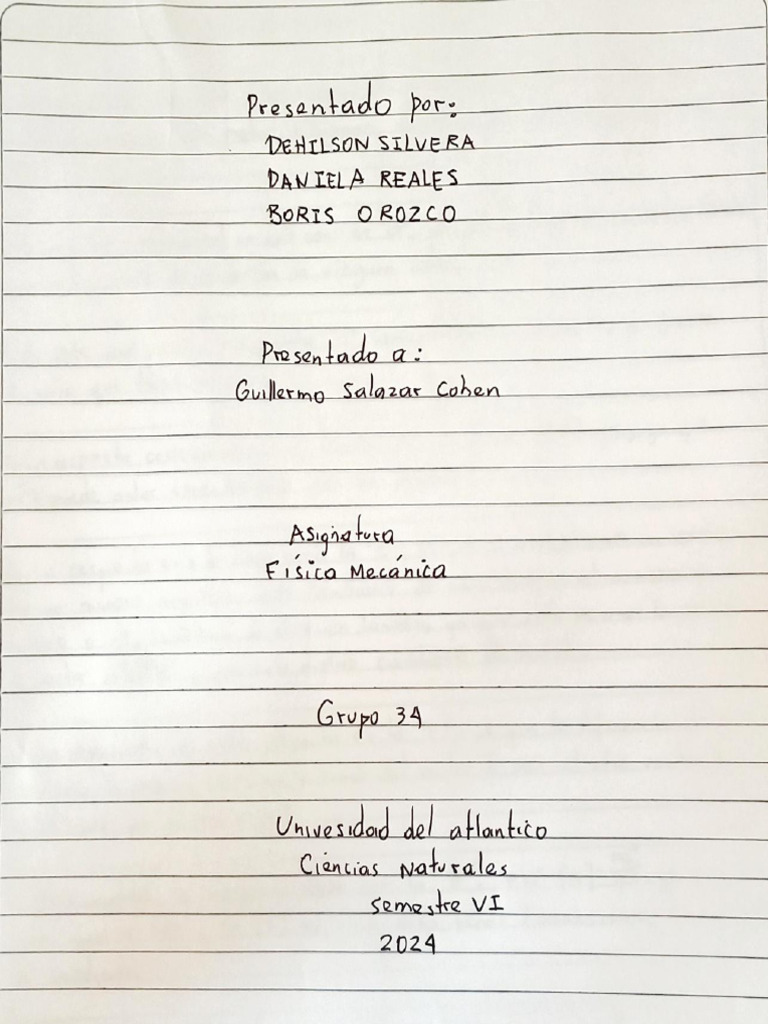 Presentado por:
DEHILSON SILVERA
DANIELA REALES
BORIS OROZCO
Presentado a:
Guillermo Salazar Cohen
Asignatura
Física Mecánica
Grupo 34
Univesidad del atlantico
Ciencias Naturales
semestre VI
2024